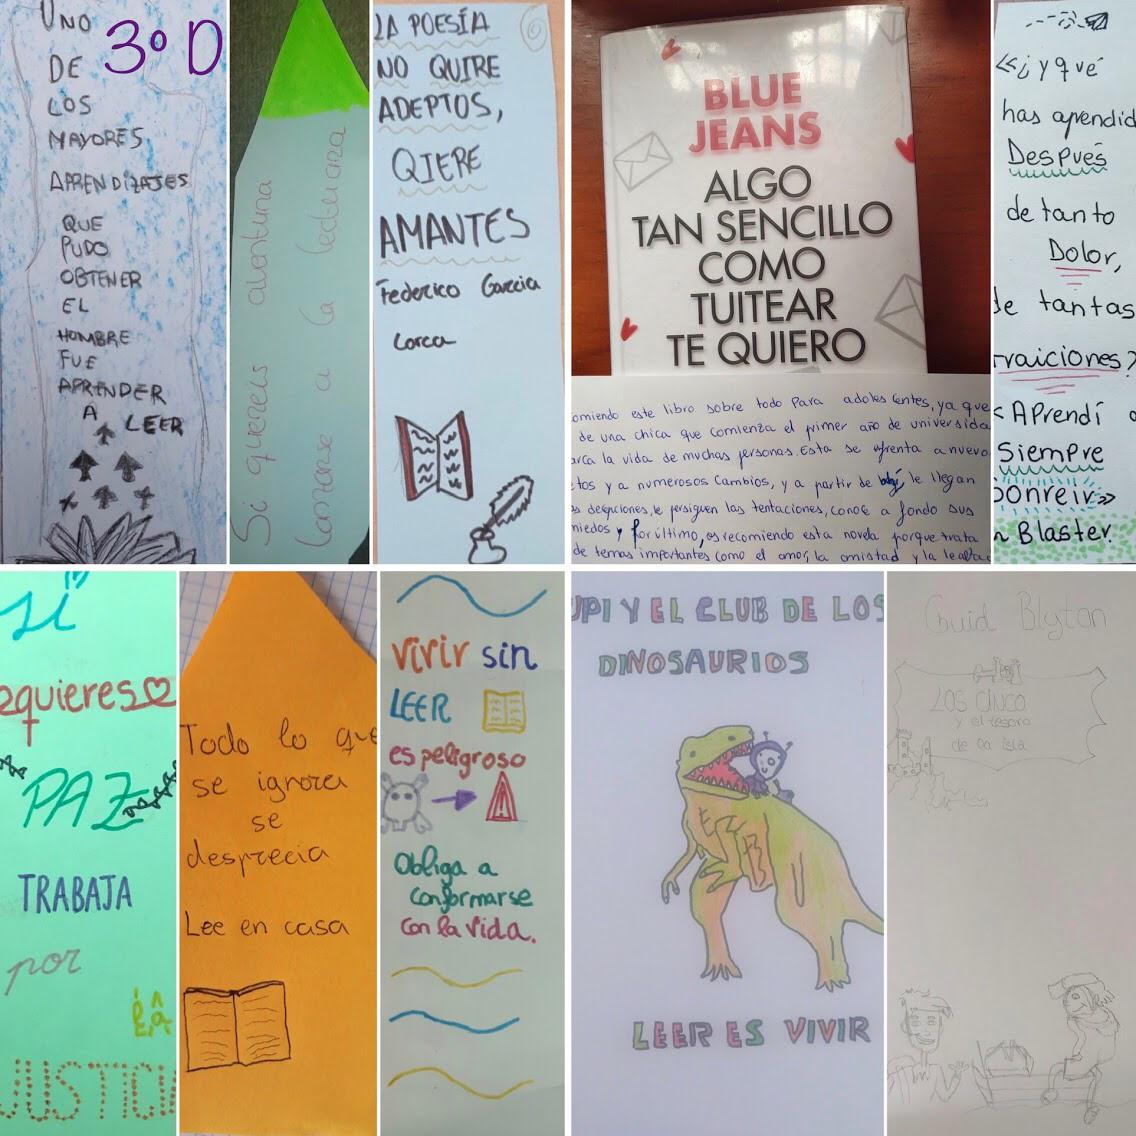 3º D
UNO
DE
LOS
MAYORES
APRENDIZAJES
QUE
PUDO
OBTENER
EL
HOMBRE
FUE
APRENDER
A LEER
Si quereis aventura
lanzarse a la lectura
LA POESÍA
NO QUIRE
ADEPTOS,
QIERE
AMANTES
Federico García
Lorca
BLUE
JEANS
ALGO
TAN SENCILLO
COMO
TUITEAR
TE QUIERO
omiendo este libro sobre todo para adolescentes, ya que
de una chica que comienza el primer año de universida
arca la vida de muchas personas. Esta se afrenta a nuevo
tos y a numerosos cambios, y a partir de le llegan
s decepciones, le persiguen las tentaciones, conoce a fondo sus
miedos y por último, os recomiendo esta novela porque trata
de temas importantes como el amor, la amistad y la lealta
«¿y qué
has aprendid
Después
de tanto
Dolor,
de tantas
raiciones?
< Aprendí a
Siempre
sonreir»
n Blaster.
Si
quieres
PAZ
TRABAJA
por
la
JUSTICI
Todo lo que
se ignora
se
desprecia
Lee en casa
vivir sin
LEER
es peligroso
Obliga a
conformarse
con la vida.
UPI Y EL CLUB DE LOS
DINOSAURIOS
LEER ES VIVIR
Enid Blyton
LOS CINCO
y el tesoro
de la isla